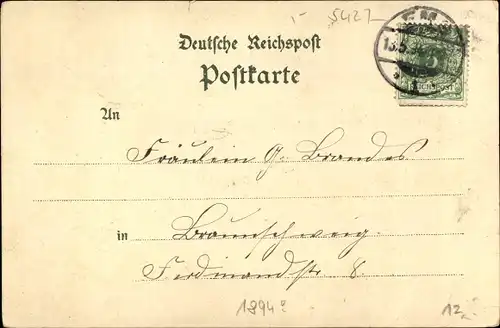 5427
Deutsche Reichspost
Postkarte
An
Fräulein G. Brandes
in Braunschweig.
Ferdinandstr 8.
1894?
12